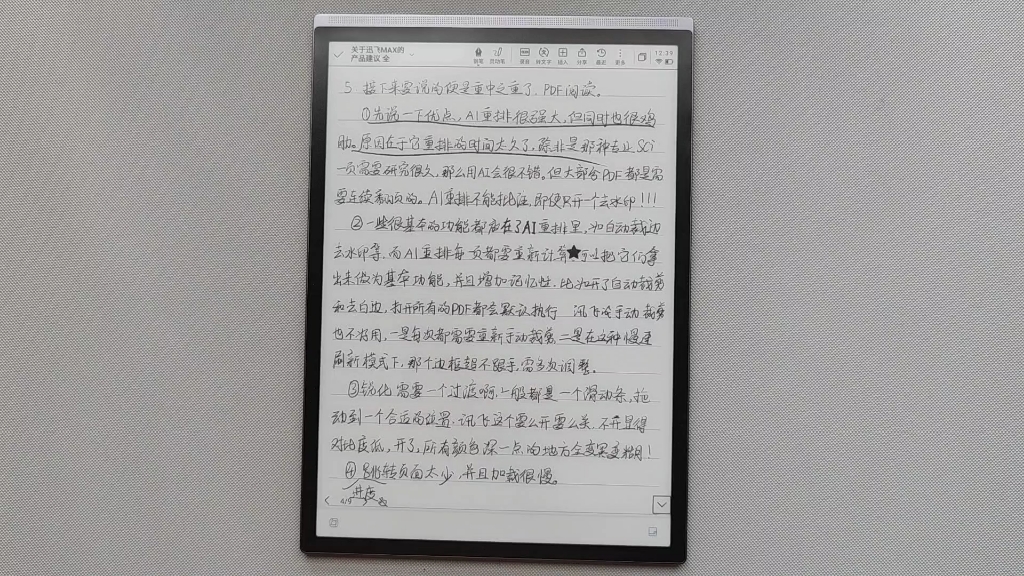 关于迅飞MAX的
产品建议 全
12:39
5 接下来要说的便是重中之重了,PDF阅读。
①先说一下优点,AI重排很强大,但同时也很鸡
肋。原因在于它重排的时间太久了,除非是那种专业SCI
一页需要研究很久,那么用AI会很不错。但大部分PDF都是需
要连续看页的。AI重排不能批注,即使只开一个去水印!!!
②一些很基本的功能都放在了AI重排里,如自动裁边
去水印等.而AI重排每一页都需重新计算★可以把它们拿
出来做为基本功能,并且增加记忆性.比如开了自动裁剪
和去白边,打开所有的PDF都会默认执行 讯飞的手动裁剪
也不好用,一是每次都需要重新手动裁剪 二是在这种慢速
刷新模式下,那个边框超不跟手,需多次调整。
③锐化需要一个过渡啊,一般都是一个滑动条,拖
动到一个合适的位置.讯飞这个要么开要么关.不开显得
对比度低,开了,所有颜色深一点的地方全变黑变糊!
④跳转页面太少,并且加载很慢。
进度